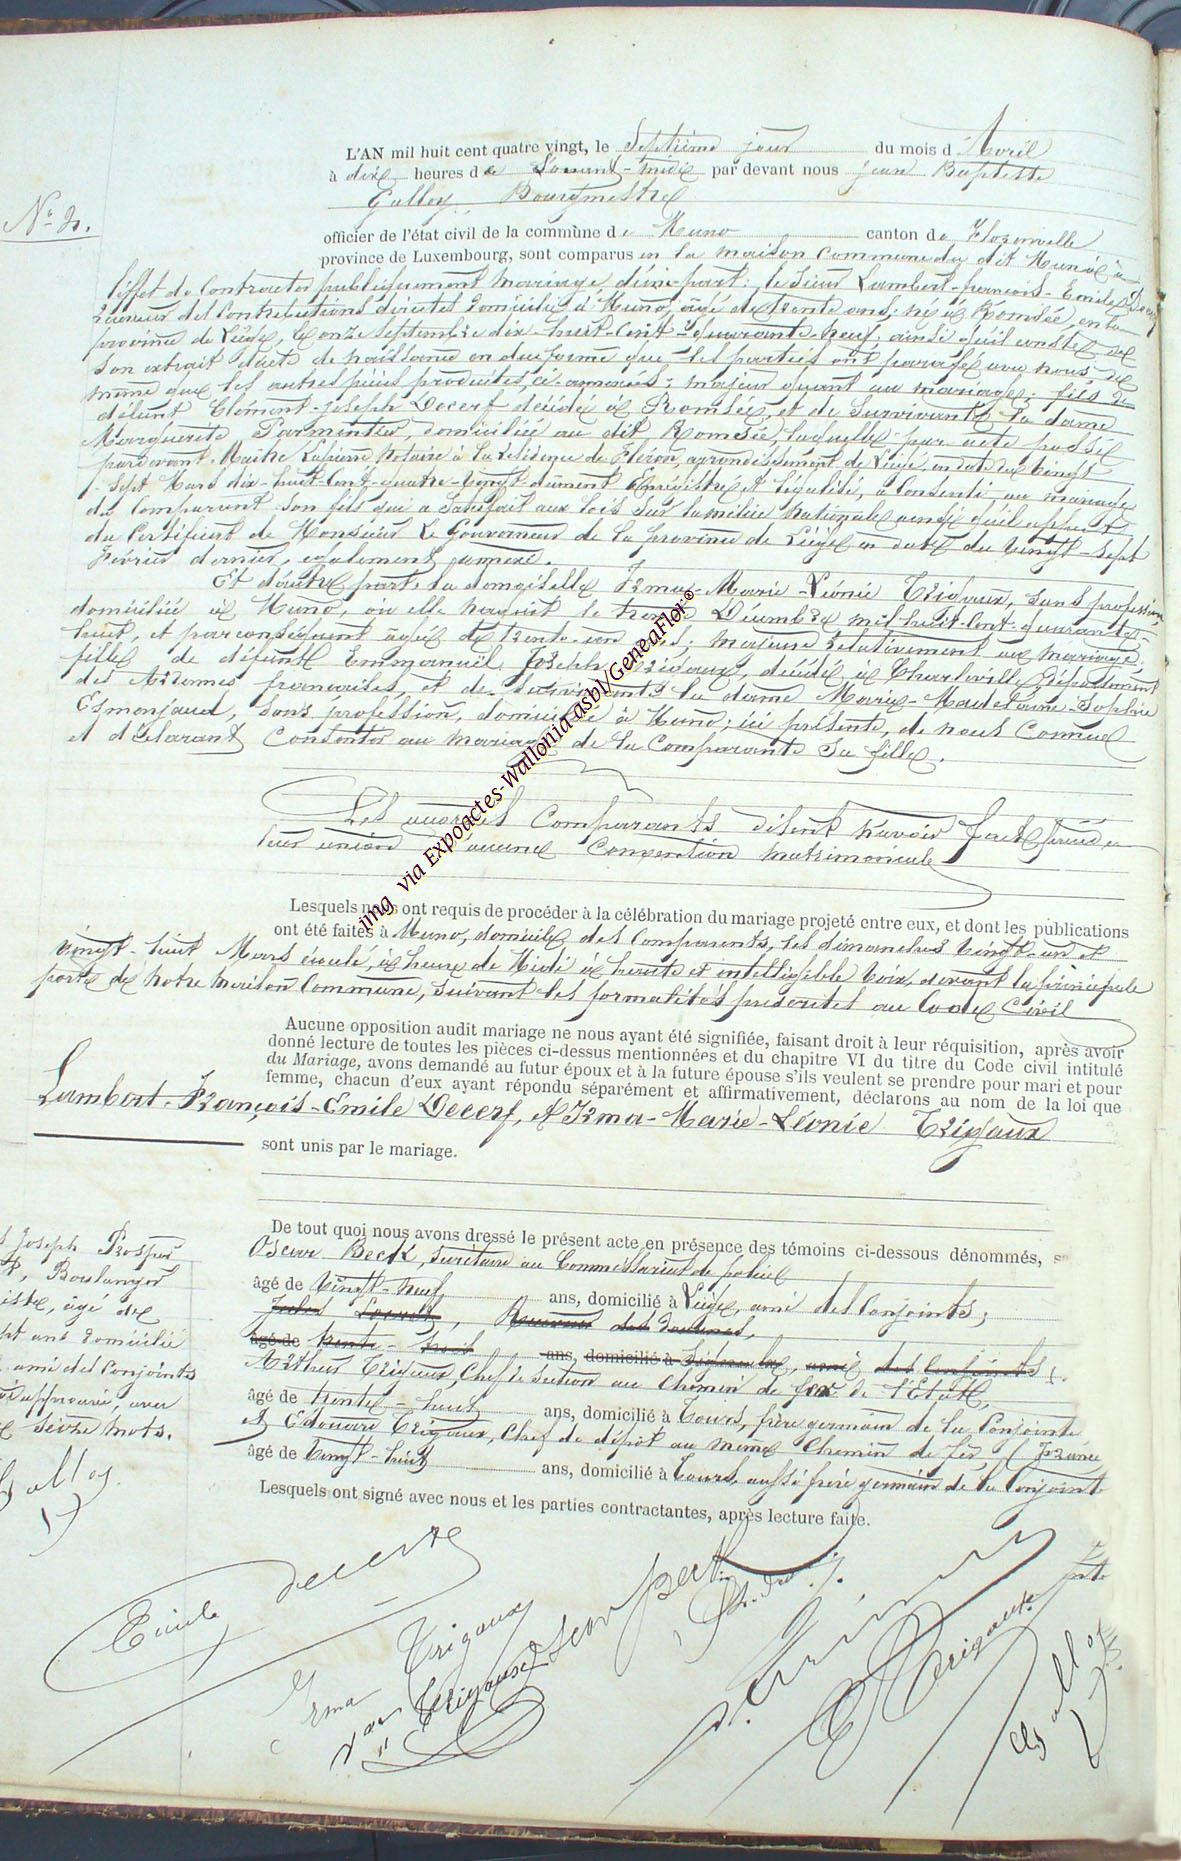 L'AN mil huit cent quatre vingt, le Septième jour du mois d'Avril
à dix heures de l'avant-midi par devant nous Jean Baptiste
Galloy Bourgmestre
N° 2.
officier de l'état civil de la commune de Muno canton de Florenville
province de Luxembourg, sont comparus en la maison commune du dit Muno à
l'effet de Contracter publiquement mariage, d'une part: le Sieur Lambert-François-Emile Decerf
receveur des Contributions directes domicilié à Muno, âgé de trente ans, né à Romsée, en la
province de Liége, le onze Septembre dix-huit-Cent-quarante-neuf, ainsi qu'il conste de
son extrait d'acte de naissance en due forme que les parties ont paraphé avec nous de
même que les autres pièces produites, ci-annexées; majeur quant au mariage; fils de
défunt Clément-Joseph Decerf décédé à Romsée, et de Survivante la dame
Marguerite Parmentier, domiciliée au dit Romsée, laquelle par acte passé
pardevant Maître Lapierre Notaire à la résidence de Fléron, arrondissement de Liége, en date du vingt-
sept Mars dix-huit-Cent-quatre-vingt dûment Enregistré et légalisé, a Consenti au mariage
du Comparant Son fils qui a Satisfait aux lois Sur la milice Nationale ainsi qu'il appert
du Certificat de Monsieur Le Gouverneur de la province de Liége en date du vingt-Sept
février dernier, également annexé.
Et d'autre part, la demoiselle Irma-Marie-Léonie Trigaux, Sans profession,
domiciliée à Muno, où elle naquit le trente Décembre mil-huit-Cent-quarante-
huit, et par conséquent âgée de trente-un ans; majeure relativement au mariage
fille de défunt Emmanuël Joseph Trigaux, décédé à Charleville, Département
des Ardennes françaises, et de Survivante la dame Marie-Madelaine-Sophie
Esmonjaud, Sans profession, domiciliée à Muno; ici présente, de nous Connue
et déclarant Consentir au mariage de la Comparante Sa fille.
Les Comparants disent n'avoir fait précéder
leur union d'aucune Convention matrimoniale
Lesquels nous ont requis de procéder à la célébration du mariage projeté entre eux, et dont les publications
ont été faites à Muno, domicile des Comparants, les dimanches vingt-un et
vingt-huit Mars écoulé, à heure de Midi à haute et intelligible voix, devant la principale
porte de Notre Maison Commune, suivant les formalités prescrites au Code Civil
Aucune opposition audit mariage ne nous ayant été signifiée, faisant droit à leur réquisition, après avoir
donné lecture de toutes les pièces ci-dessus mentionnées et du chapitre VI du titre du Code civil intitulé
du Mariage, avons demandé au futur époux et à la future épouse s'ils veulent se prendre pour mari et pour
femme, chacun d'eux ayant répondu séparément et affirmativement, déclarons au nom de la loi que
Lambert-François-Emile Decerf, et Irma-Marie-Léonie Trigaux
sont unis par le mariage.
De tout quoi nous avons dressé le présent acte en présence des témoins ci-dessous dénommés, s
Oscar Beck, Secrétaire au Commissariat de police
âgé de Vingt-Neuf ans, domicilié à Liége, ami des Conjoints;
Jules , Receveur des Douanes,
âgé de trente-trois ans, domicilié à , ami des Conjoints;
Arthur Trigaux, Chef de Section au Chemin de fer de l'Etat,
âgé de trente-huit ans, domicilié à Tours, frère germain de la Conjointe
et Edouard Trigaux, Chef de dépôt au même Chemin de fer, (France
âgé de Vingt-huit ans, domicilié à Tours, aussi frère germain de la Conjointe
Lesquels ont signé avec nous et les parties contractantes, après lecture faite.
Joseph Prosper
Boulanger
âgé de
ans domicilié
ami des Conjoints
approuvé, avec
mots.
Galloy
Emile Decerf
Irma Trigaux
Oscar Beck
Trigaux
E Trigaux
Galloy
img via Expoactes-Wallonia asbl/GeneaFlor©